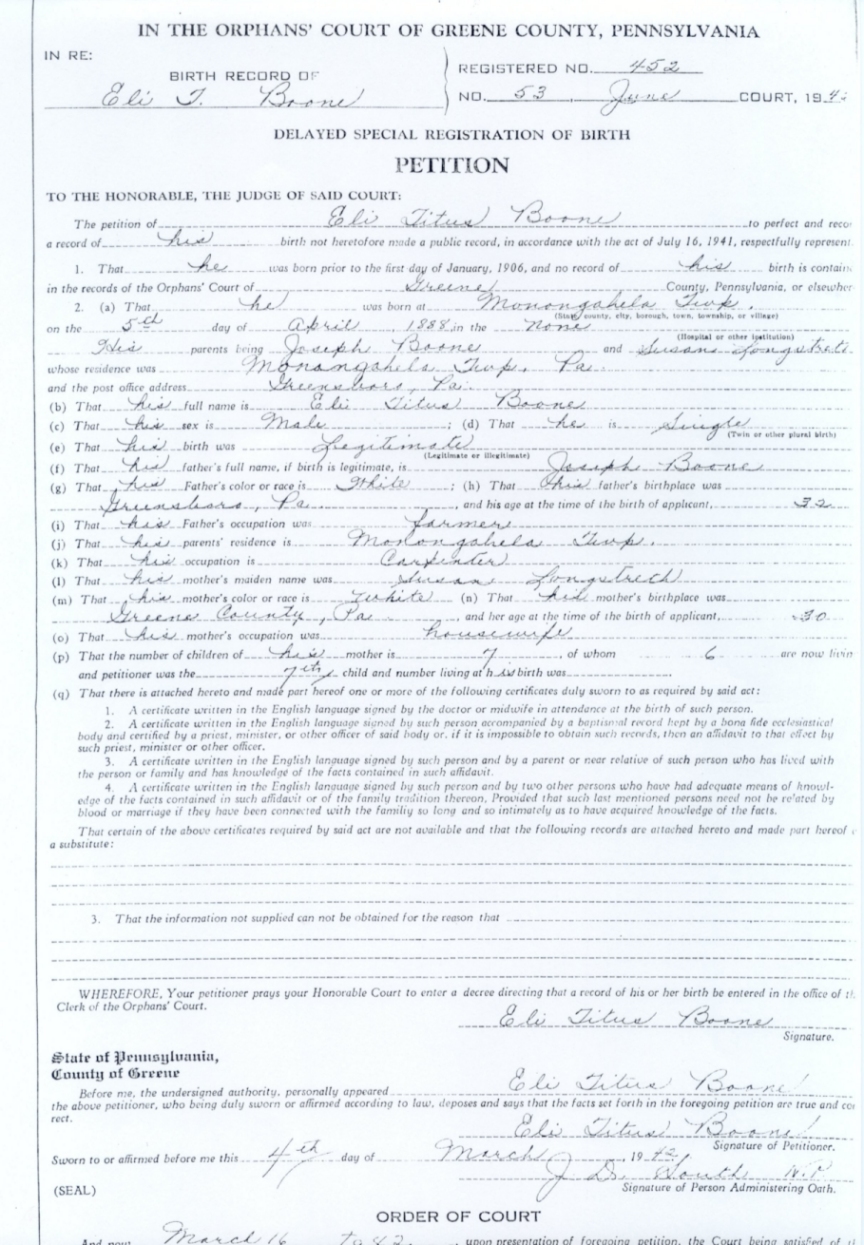 IN THE ORPHANS' COURT OF GREENE COUNTY, PENNSYLVANIA
IN RE:
BIRTH RECORD OF
Eli T. Boone
REGISTERED NO. 452
NO. 53, June COURT, 194
DELAYED SPECIAL REGISTRATION OF BIRTH
PETITION
TO THE HONORABLE, THE JUDGE OF SAID COURT:
The petition of Eli Titus Boone to perfect and reco
a record of his birth not heretofore made a public record, in accordance with the act of July 16, 1941, respectfully represent
1. That he was born prior to the first day of January, 1906, and no record of his birth is contain
in the records of the Orphans' Court of Greene County, Pennsylvania, or elsewher
2. (a) That he was born at Monongahela Twp.
(State, county, city, borough, town, township, or village)
on the 5th day of April, 1888, in the none
(Hospital or other institution)
His parents being Joseph Boone and Susan Longstret
whose residence was Monongahela Twp. Pa.
and the post office address Greensboro, Pa.
(b) That his full name is Eli Titus Boone
(c) That his sex is Male ; (d) That he is Single
(Twin or other plural birth)
(e) That his birth was Legitimate
(Legitimate or illegitimate)
(f) That his father's full name, if birth is legitimate, is Joseph Boone
(g) That his Father's color or race is White ; (h) That his father's birthplace was
Greensboro, Pa , and his age at the time of the birth of applicant, 32
(i) That his Father's occupation was farmer
(j) That his parents' residence is Monongahela Twp.
(k) That his occupation is Carpenter
(l) That his mother's maiden name was Susan Longstreth
(m) That his mother's color or race is White (n) That his mother's birthplace was
Greene County, Pa , and her age at the time of the birth of applicant, 30
(o) That his mother's occupation was housewife
(p) That the number of children of his mother is 7, of whom 6 are now livin
and petitioner was the 7th child and number living at his birth was
(q) That there is attached hereto and made part hereof one or more of the following certificates duly sworn to as required by said act:
1. A certificate written in the English language signed by the doctor or midwife in attendance at the birth of such person.
2. A certificate written in the English language signed by such person accompanied by a baptismal record kept by a bona fide ecclesiastical
body and certified by a priest, minister, or other officer of said body or, if it is impossible to obtain such records, then an affidavit to that effect by
such priest, minister or other officer.
3. A certificate written in the English language signed by such person and by a parent or near relative of such person who has lived with
the person or family and has knowledge of the facts contained in such affidavit.
4. A certificate written in the English language signed by such person and by two other persons who have had adequate means of knowl-
edge of the facts contained in such affidavit or of the family tradition thereon, Provided that such last mentioned persons need not be related by
blood or marriage if they have been connected with the familiy so long and so intimately as to have acquired knowledge of the facts.
That certain of the above certificates required by said act are not available and that the following records are attached hereto and made part hereof
a substitute:
3. That the information not supplied can not be obtained for the reason that
WHEREFORE, Your petitioner prays your Honorable Court to enter a decree directing that a record of his or her birth be entered in the office of th
Clerk of the Orphans' Court.
Eli Titus Boone
Signature.
State of Pennsylvania,
County of Greene
Before me, the undersigned authority, personally appeared Eli Titus Boone
the above petitioner, who being duly sworn or affirmed according to law, deposes and says that the facts set forth in the foregoing petition are true and cor
rect.
Eli Titus Boone
Signature of Petitioner.
Sworn to or affirmed before me this 4th day of March, 1942
J. D. South N.P.
(SEAL)
Signature of Person Administering Oath.
ORDER OF COURT
And now March 16 1942, upon presentation of foregoing petition, the Court being satisfied of th